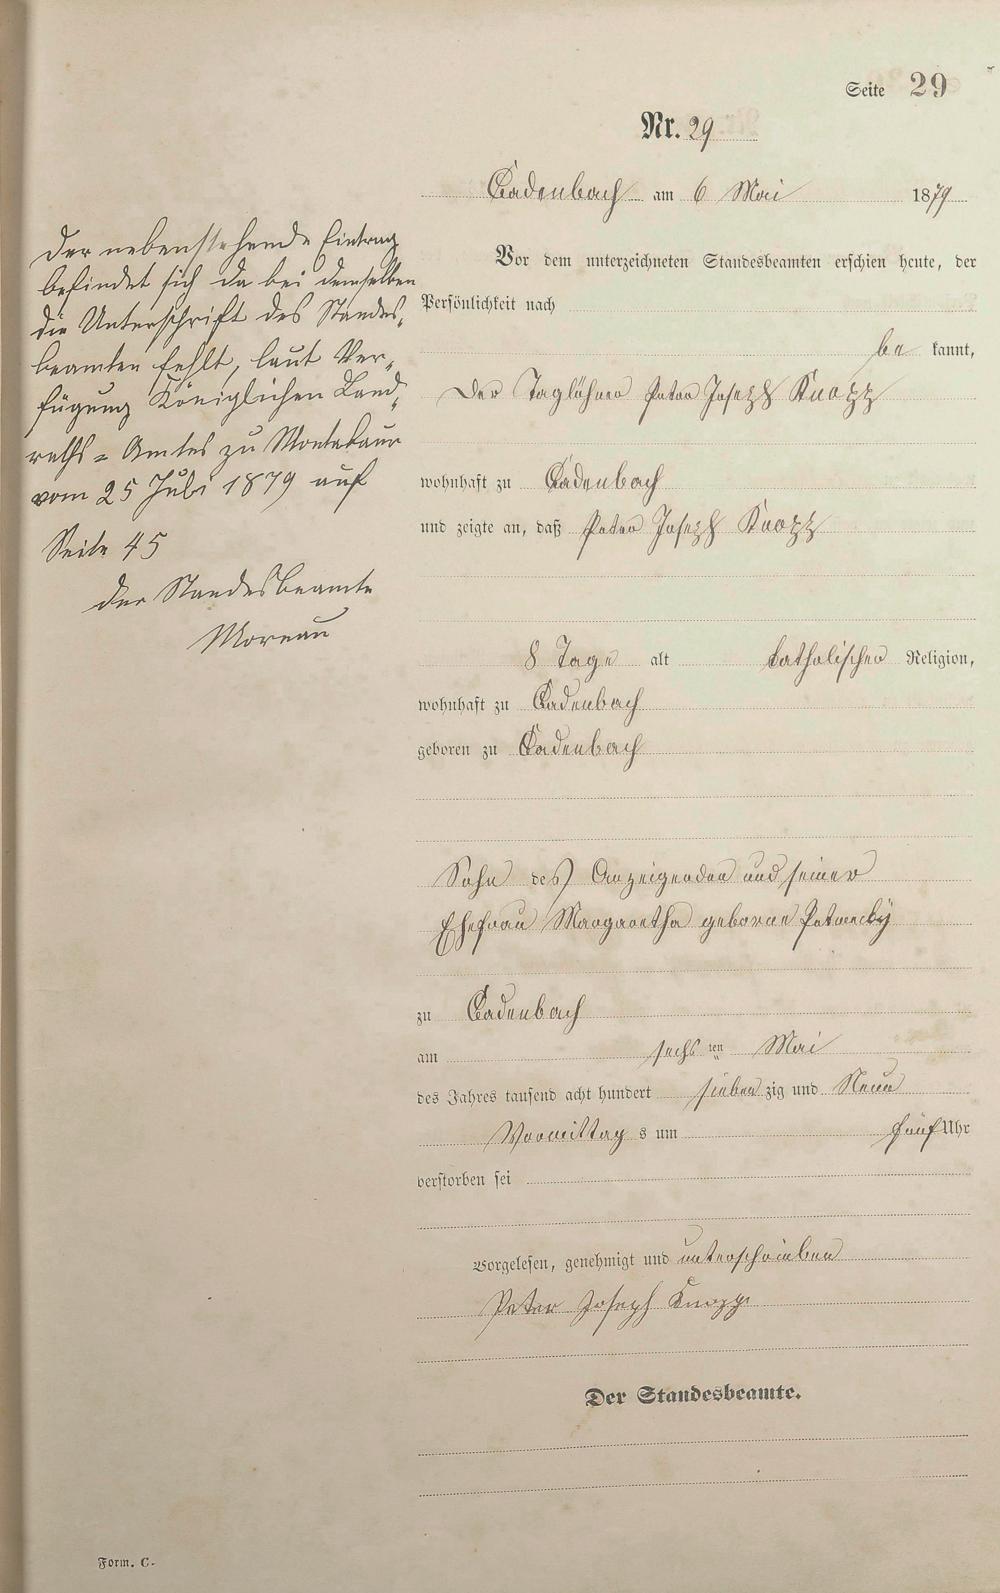 Seite 29
Nr. 29
Cadenbach am 6 Mai 1879
Der nebenstehende Eintrag
befindet sich da bei demselben
die Unterschrift des Standes-
beamten fehlt, laut Ver-
fügung Königlichen Land-
raths-Amtes zu Montabaur
vom 25 Juli 1879 auf
Seite 45
Der Standesbeamte
Moreau
Vor dem unterzeichneten Standesbeamten erschien heute, der
Persönlichkeit nach
be kannt,
Der Taglöhner Peter Joseph Knopp
wohnhaft zu Cadenbach
und zeigte an, daß Peter Joseph Knopp
8 Tage alt katholischer Religion,
wohnhaft zu Cadenbach
geboren zu Cadenbach
Sohn des Anzeigenden und seiner
Ehefrau Margaretha geborne
zu Cadenbach
am sechs ten Mai
des Jahres tausend acht hundert sieben zig und Neun
Vormittag s um fünf Uhr
verstorben sei
Vorgelesen, genehmigt und unterschrieben
Peter Joseph Knopp
Der Standesbeamte.
Form. C.